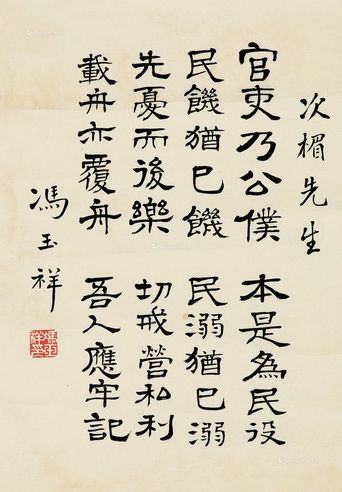 次楣先生
官吏乃公僕 本是為民役
民饑猶已饑 民溺猶已溺
先憂而後樂 切戒營私利
載舟亦覆舟 吾人應牢記
馮玉祥